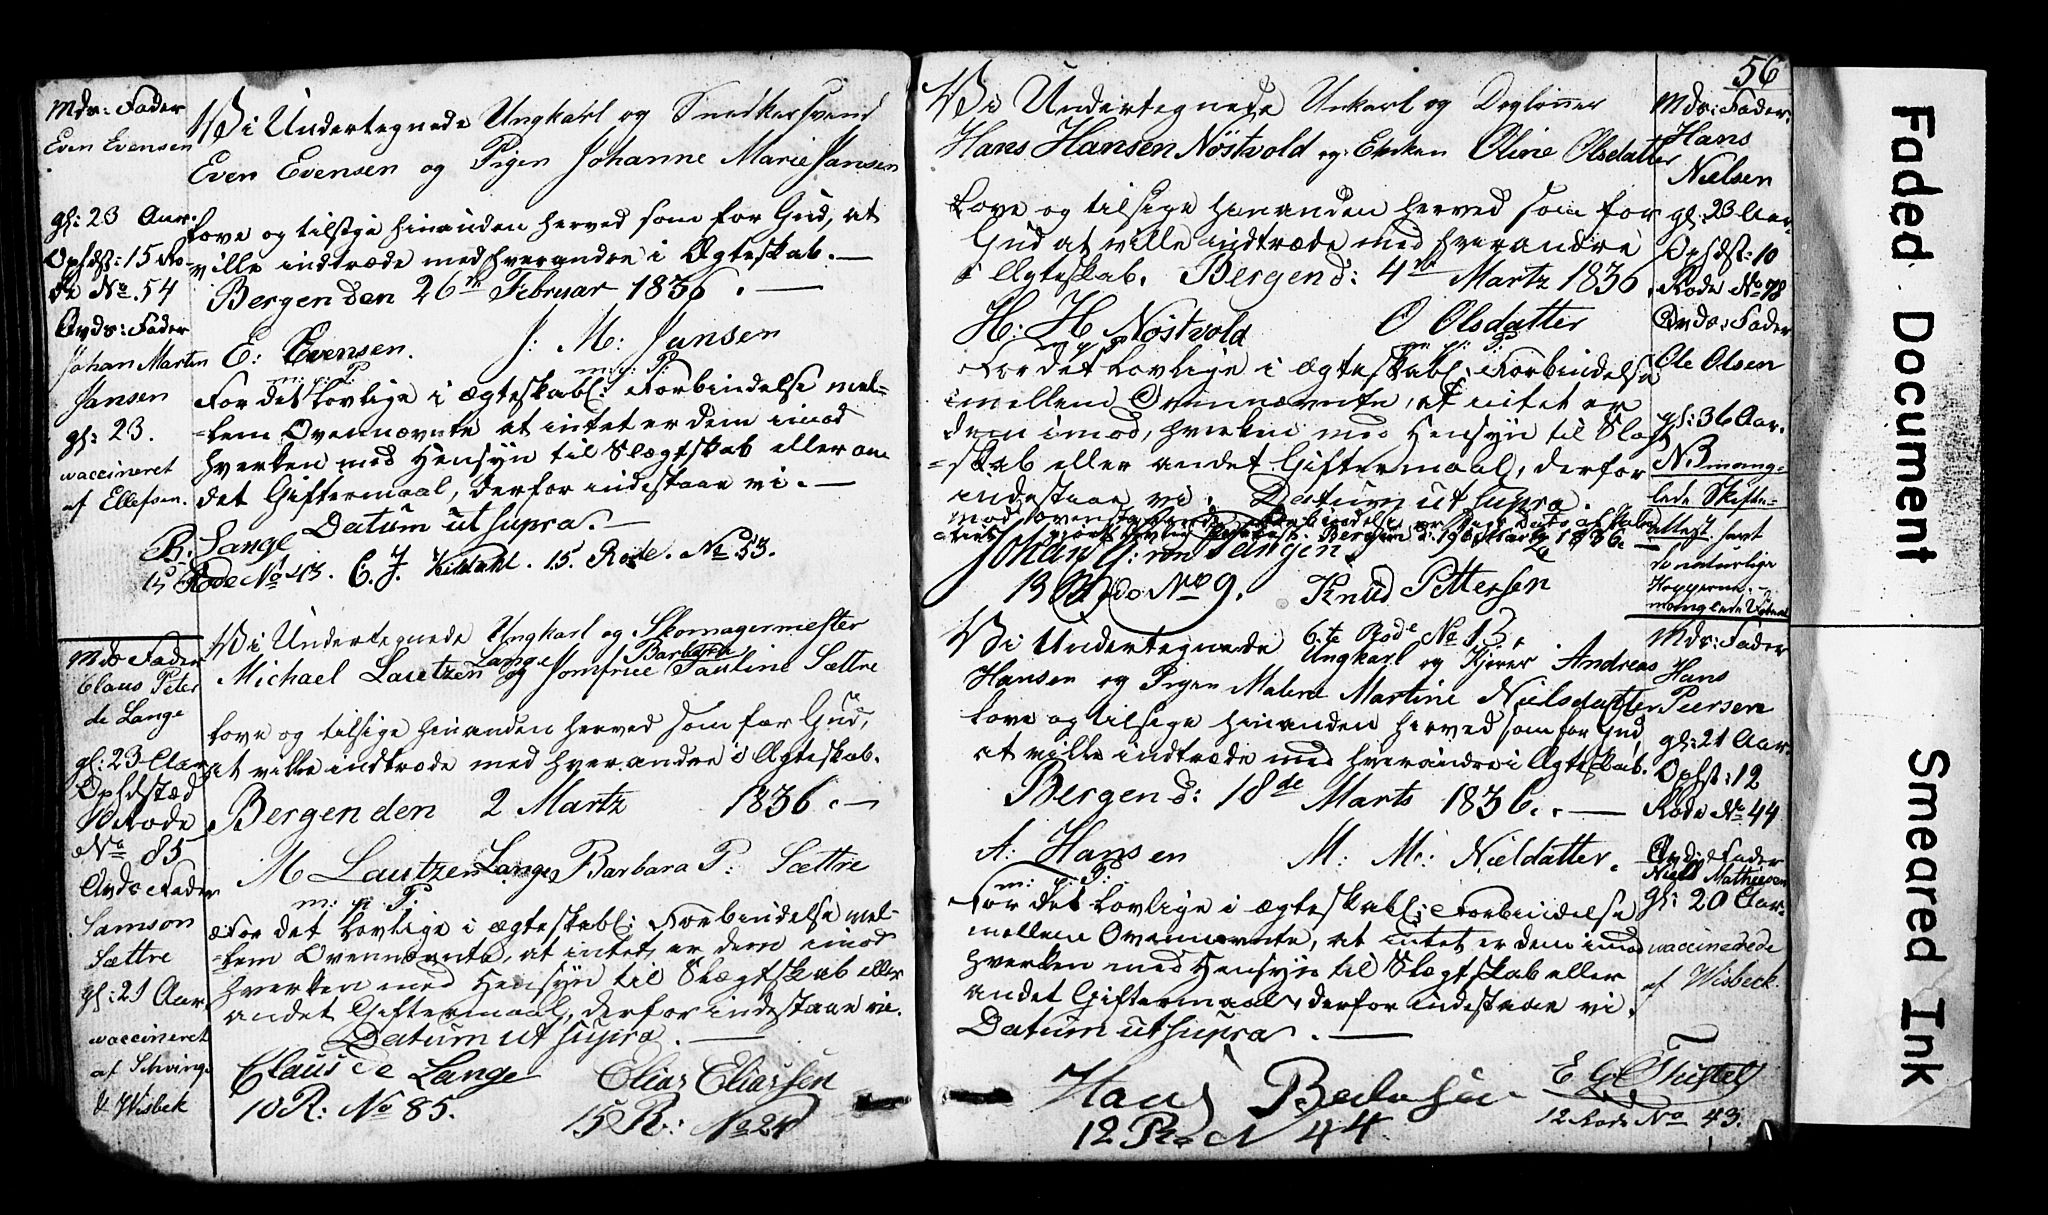 Mds: Fader
Even Evensen
gl: 23 Aar.
Ophdst: 15 Ro-
de No. 54
Brds: Fader
Johan Martin
Jansen
gl: 23.
waccineret
af Ellefsen.
Vi Undertegnede Ungkarl og Snedkersvend
Even Evensen og Pigen Johanne Marie Jansen
love og tilsige hinanden herved som for Gud, at
ville indtræde med hverandre i Ægteskab. —
Bergen den 26de Februar 1836. —
E: Evensen. J: M: Jansen
m: p: P: m: p: P:
For det lovlige i ægteskabl: Forbindelse mel-
-lem Ovennævnte at intet er dem imod
hverken med Hensyn til Slægtskab eller an-
det Giftermaal, derfor indestaae vi. —
Datum ut supra. —
R. Lange
15 Rode No 43. C. J. Kildahl. 15. Rode. No 53.
Mds Fader
Claus Peter
de Lange
gl: 23 Aar
Ophdstæd
10 Rode
No 85
Brds Fader
Samson
Sættre
gl: 21 Aar.
waccineret
af Schving-
& Wisbek
Vi Undertegnede Ungkarl og Skomagermester
Lange Barbara
Michael Lautzen og Jomfrue Pauline Sættre
love og tilsige hinanden herved som for Gud,
at ville indtræde med hverandre i Ægteskab.
Bergen den 2 Martz 1836. —
M Lautzen Lange Barbara P: Sættre
m: p: P:
For det lovlige i ægteskabl: Forbindelse mel-
-lem Ovennævnte, at intet er dem imod
hverken med Hensyn til Slægtskab eller
andet Giftermaal, derfor indestaae vi.
Datum ut supra. —
Claus de Lange Elias Eliassen
10 R: No 85. 15 R: No 24
56
Vi Undertegnede Unkarl og Daglønner
Hans Hansen Nøstvold og Enken Oline Olsdatter
love og tilsige hinanden herved som for
Gud at ville indtræde med hverandre
i Ægteskab. Bergen d: 4de Martz 1836.
H: H Nøstvold O Olsdatter
m p P m: p: P:
For det lovlige i ægteskabl: Forbindelse
imellem Ovennævnte, at intet er
dem imod, hverken med Hensyn til Slægt
-skab eller andet Giftermaal, derfor
indestaae vi. Datum ut supra.
Bergen d: 19de Martz 1836.
Johan J: von Tangen
13 Rode No 9. Knud Pettersen
6te Rode No 13.
Mds: Fader:
Hans
Nielsen
gl: 23 Aar.
Ophdst: 10
Rode No 78
Brds: Fader
Ole Olsen
gl: 36 Aar.
N.B mang-
lede Skifte-
attest samt
de naturlige
Kopperne.
Vi Undertegnede Ungkarl og Kjører Andreas
Hansen og Pigen Malene Martine Nielsdatter
love og tilsige hinanden herved som for Gud,
at ville indtræde med hverandre i Ægteskab.
Bergen d: 18de Marts 1836. —
A: Hansen M: M: Nieldatter.
m: p: P:
For det lovlige i ægteskabl: Forbindelse
mellem Ovennævnte, at intet er dem imod
hverken med Hensyn til Slægtskab eller
andet Giftermaal, derfor indestaae vi.
Datum ut supra. —
Hans
12 Ro N 44
E G Thistel
12 Rode No 43.
Mds: Fader
Hans
Peersen
gl: 21 Aar.
Ophst: 12
Rode No 44
Brds: Fader
Niels Mathiesen
gl: 20 Aar.
waccinerede
af Wisbeck.
Faded Document
Smeared Ink